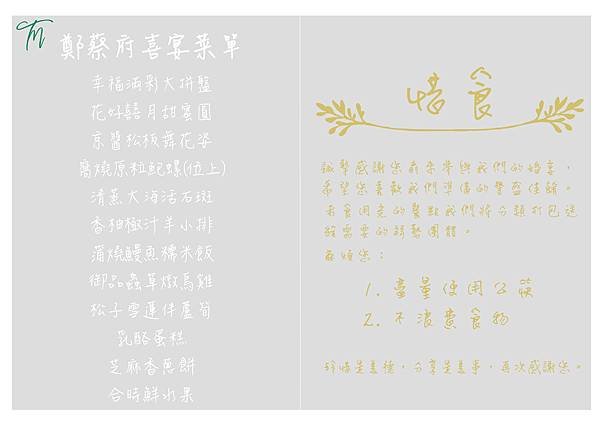 TM
鄭蔡府喜宴菜單
幸福滿彩大拼盤
花好囍月甜蜜圓
京醬松板舞花姿
醬燒原粒鮑螺(位上)
清蒸大海活石斑
香柚極汁羊小排
蒲燒鰻魚糯米飯
御品蟲草燉烏雞
松子雪蓮伴蘆筍
乳酪蛋糕
芝麻香蔥餅
合時鮮水果
惜食
誠摯感謝您前來參與我們的婚宴，
希望您喜歡我們準備的豐盛佳餚。
未食用完的餐點我們將分類打包送
給需要的弱勢團體。
麻煩您：
1. 盡量使用公筷
2. 不浪費食物
珍惜是美德，分享是美事，再次感謝您。